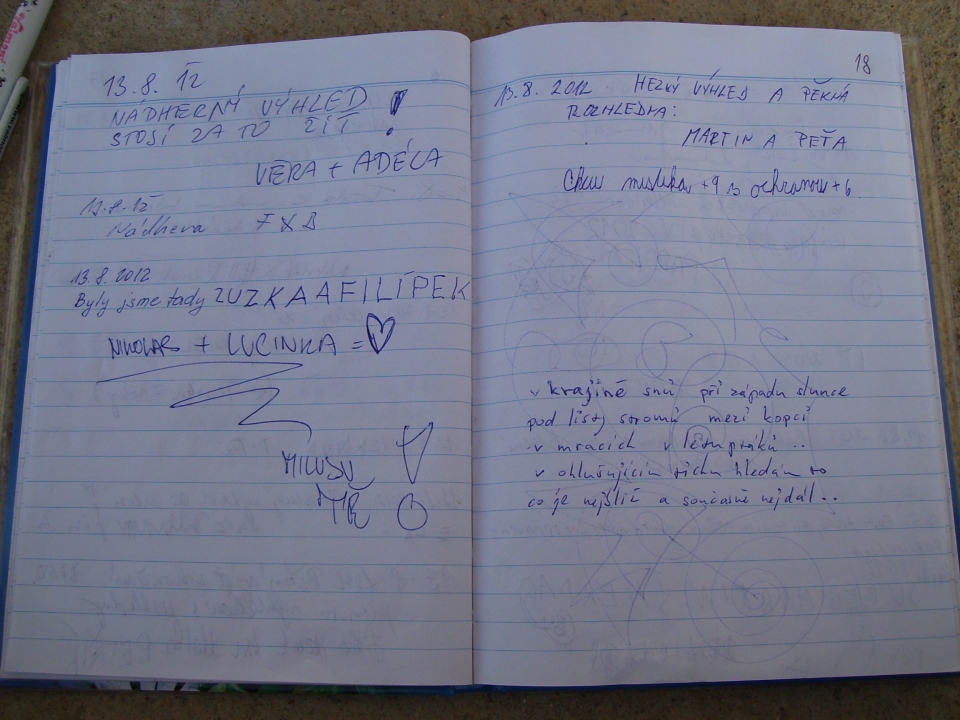 13.8.12
NÁDHERNÝ VÝHLED
STOJÍ ZA TO ŽÍT!
VĚRA + ADÉLA
13.8.12
Nádhera FXB
13.8.2012
Byly jsme tady ZUZKA A FILÍPEK
NIKOLAS + LUCINKA =
MILUJU
TĚ
18
13.8.2012 HEZKÝ VÝHLED A PĚKNÁ
ROZHLEDNA:
MARTIN A PEŤA
Chcu +9 s ochranou +6
v krajině snů při západu slunce
pod listy stromů mezi kopci
v mracích v letu ptáků ..
v ohlušujícím tichu hledám to
co je nejblíž a současně nejdál ..